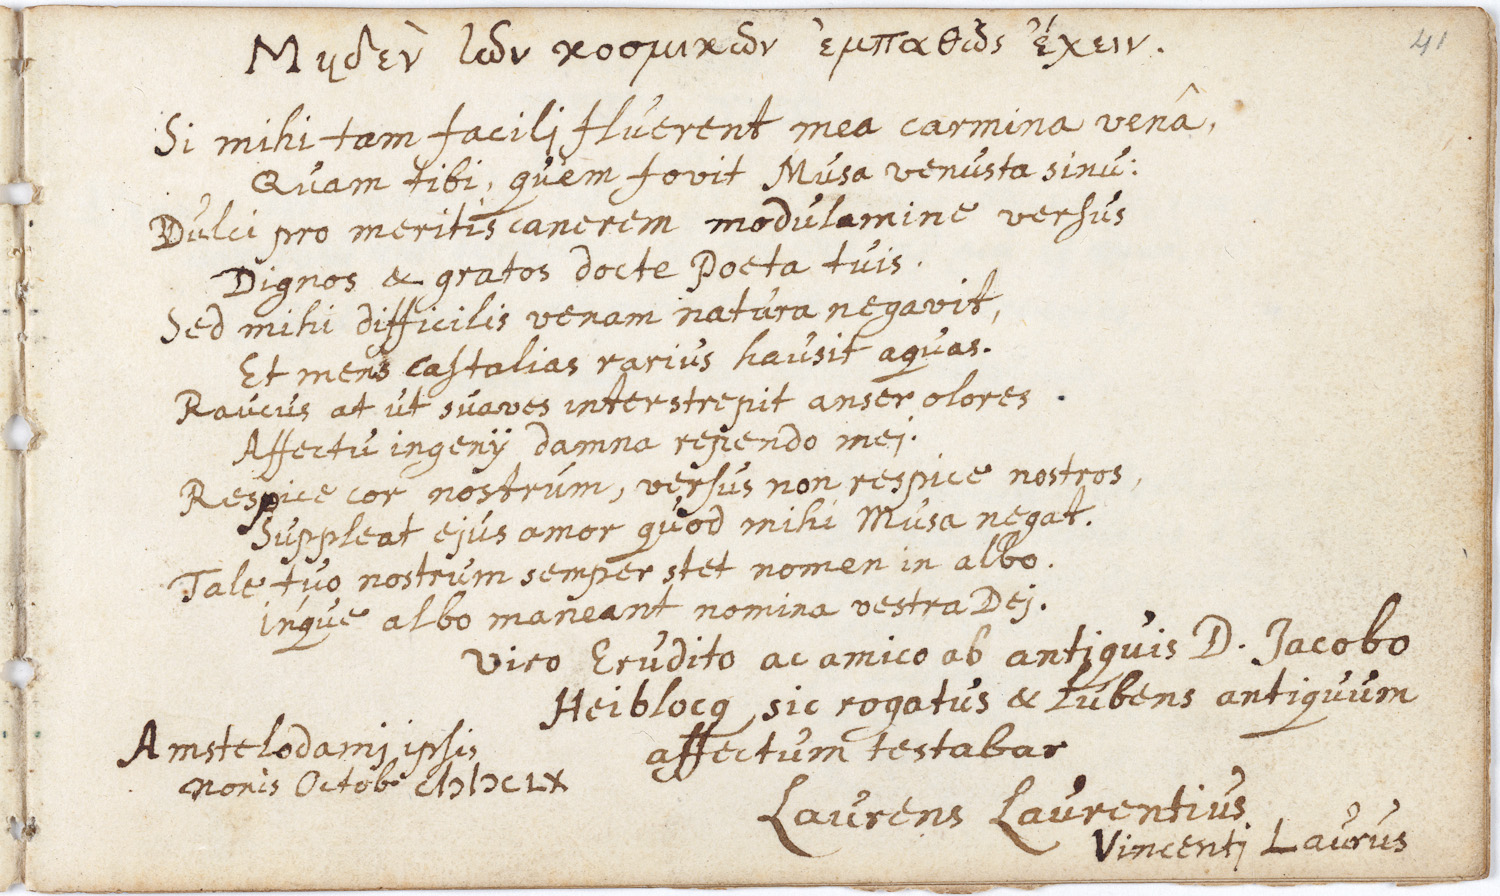 Μηδὲν τῶν κοσμικῶν ἐμπαθῶς ἔχειν.
41
Si mihi tam facilj fluerent mea carmina venâ,
Quam tibi, quem fovit Musa venusta sinu:
Dulci pro meritis canerem modulamine versus
Dignos & gratos docte Poeta tuis.
Sed mihi difficilis venam natura negavit,
Et mens Castalias rarius hausit aquas.
Raucus at ut suaves interstrepit anser olores.
Affectu ingenij damna rependo mej.
Respice cor nostrum, versus non respice nostros,
Suppleat ejus amor quod mihi Musa negat.
Tale tuo nostrum semper stet nomen in albo.
inque albo maneant nomina vestra Dej.
Viro Erudito ac amico ab antiquis D. Jacobo
Heiblocq sic rogatus & lubens antiquum
affectum testabar
Amstelodamj ipsis
nonis Octob cIↃIↃcLX
Laurens Laurentius
Vincentj Laurus